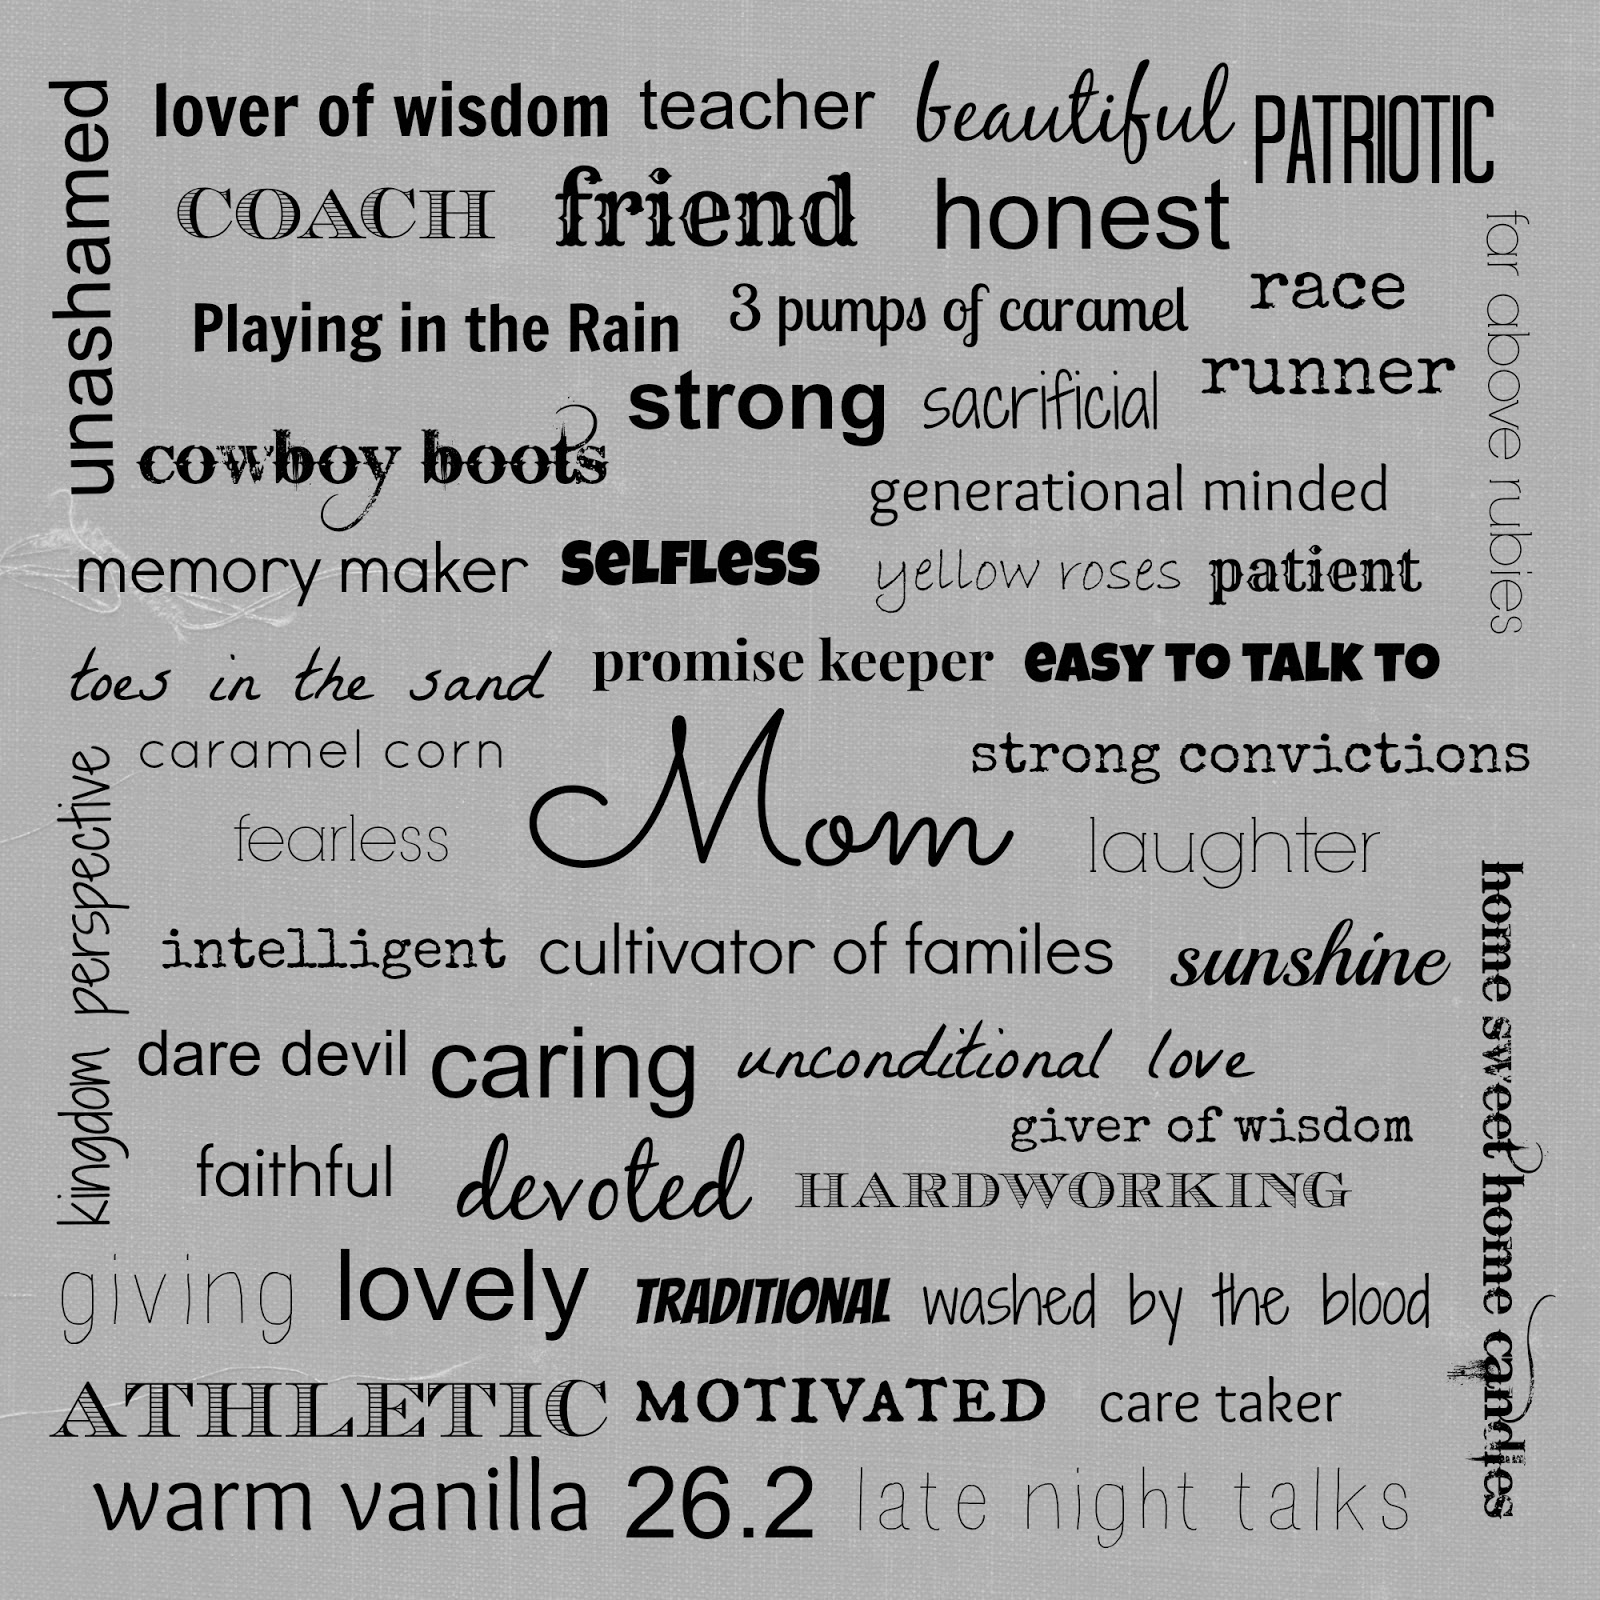 unashamed
lover of wisdom teacher beautiful PATRIOTIC
COACH friend honest
far above rubies
Playing in the Rain 3 pumps of caramel race
runner
strong sacrificial
cowboy boots
generational minded
memory maker selfless yellow roses patient
toes in the sand promise keeper easy to talk to
kingdom perspective
caramel corn Mom strong convictions
fearless laughter
home sweet home candies
intelligent cultivator of familes sunshine
dare devil caring unconditional love
giver of wisdom
faithful devoted HARDWORKING
giving lovely TRADITIONAL washed by the blood
ATHLETIC MOTIVATED care taker
warm vanilla 26.2 late night talks